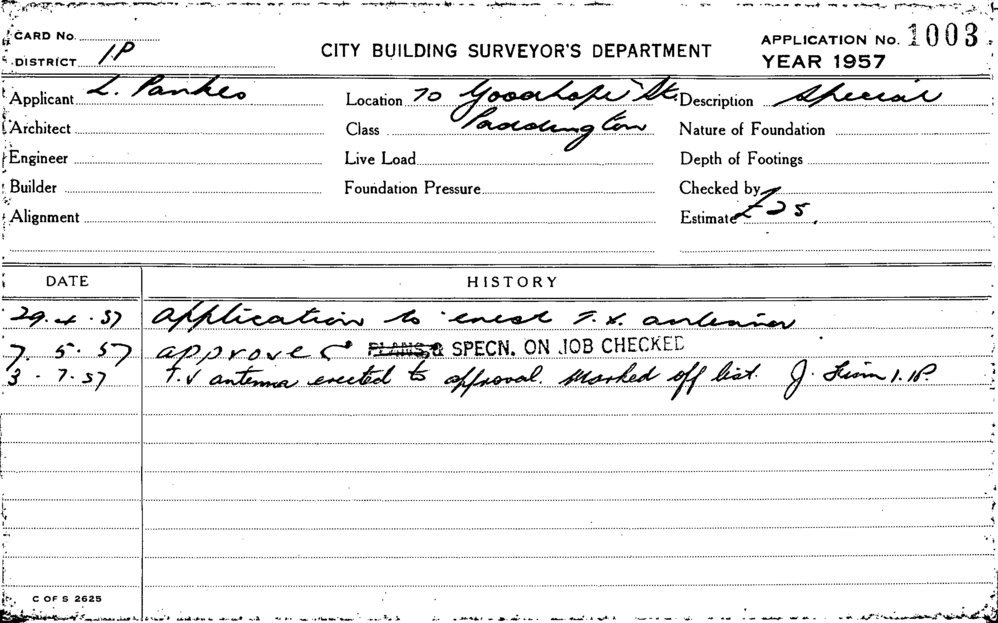 CARD No.
DISTRICT 1P
CITY BUILDING SURVEYOR'S DEPARTMENT
APPLICATION No. 1003
YEAR 1957
Applicant L. Pankes Location 70 Goodhope St. Description Special
Architect Class Paddington Nature of Foundation
Engineer Live Load Depth of Footings
Builder Foundation Pressure Checked by
Alignment Estimate £25.
DATE HISTORY
29.4.57 Application to erect T.V. antenna
7.5.57 approved PLANS & SPECN. ON JOB CHECKED
3.7.57 T.V antenna erected to approval. Marked off list. J. 1.1P.
C OF S 2625